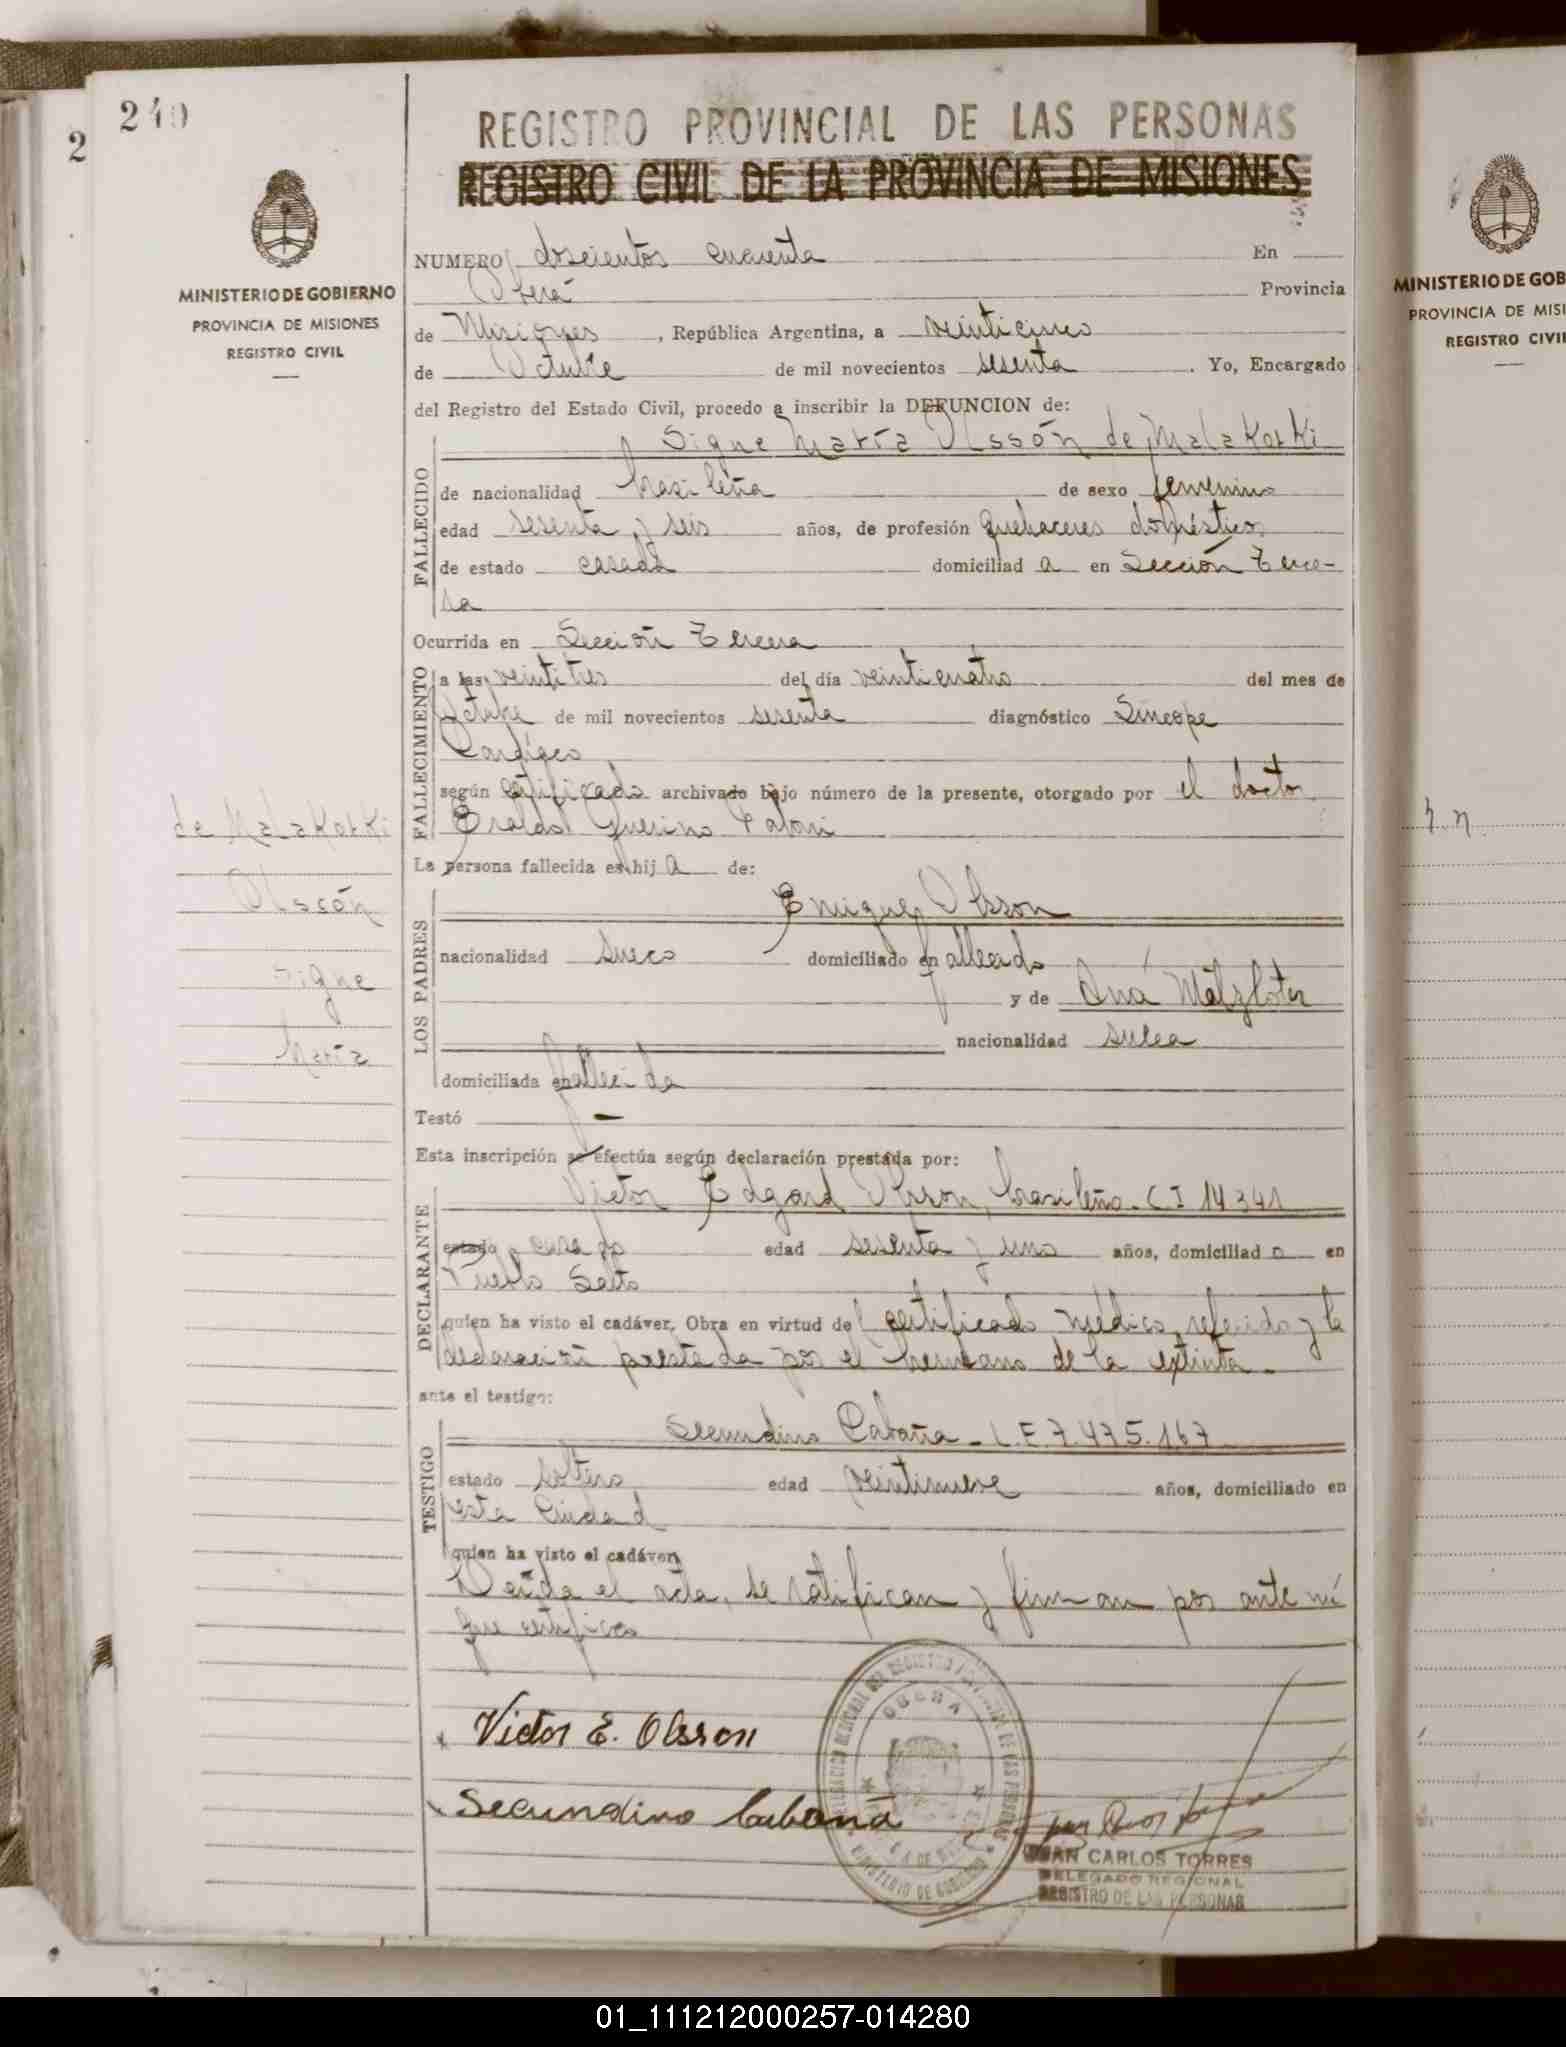 240
2
REGISTRO PROVINCIAL DE LAS PERSONAS
REGISTRO CIVIL DE LA PROVINCIA DE MISIONES
MINISTERIO DE GOBIERNO
PROVINCIA DE MISIONES
REGISTRO CIVIL
NUMERO doscientos cuarenta En
Oberá Provincia
de Misiones, República Argentina, a veinticinco
de Octubre de mil novecientos sesenta. Yo, Encargado
del Registro del Estado Civil, procedo a inscribir la DEFUNCION de:
FALLECIDO
Signe María Olssón de Malakoski
de nacionalidad brasileña de sexo femenino
edad sesenta y seis años, de profesión quehaceres domésticos
de estado casada domiciliad a en Sección Terce-
ra
Ocurrida en Sección Tercera
FALLECIMIENTO
a las veintitres del día veinticuatro del mes de
Octubre de mil novecientos sesenta diagnóstico Síncope
Cardíaco
según certificado archivado bajo número de la presente, otorgado por el doctor
Eraldo Guerino
La persona fallecida es hij a de:
LOS PADRES
Enrique Olsson
nacionalidad sueco domiciliado en fallecido
y de Ana
nacionalidad sueca
domiciliada en fallecida
Testó -
Esta inscripción se efectúa según declaración prestada por:
DECLARANTE
Victor Edgard Olsson, brasileño - C I 14341
estado casado edad sesenta y uno años, domiciliad o en
Pueblo Salto
quien ha visto el cadáver. Obra en virtud del certificado médico referido y la
declaración prestada por el hermano de la extinta -
ante el testigo:
TESTIGO
Secundino Cabaña - L.E. 7.475.167
estado soltero edad veintinueve años, domiciliado en
esta Ciudad
quien ha visto el cadáver
Leída el acta, se ratifican y firman por ante mí
que certifico
de Malakoski
Olssón
Signe
María
Victor E. Olsson
Secundino Cabaña
OBERA
JUAN CARLOS TORRES
DELEGADO REGIONAL
REGISTRO DE LAS PERSONAS
MINISTERIO DE GOB
PROVINCIA DE MISI
REGISTRO CIVIL
01_111212000257-014280